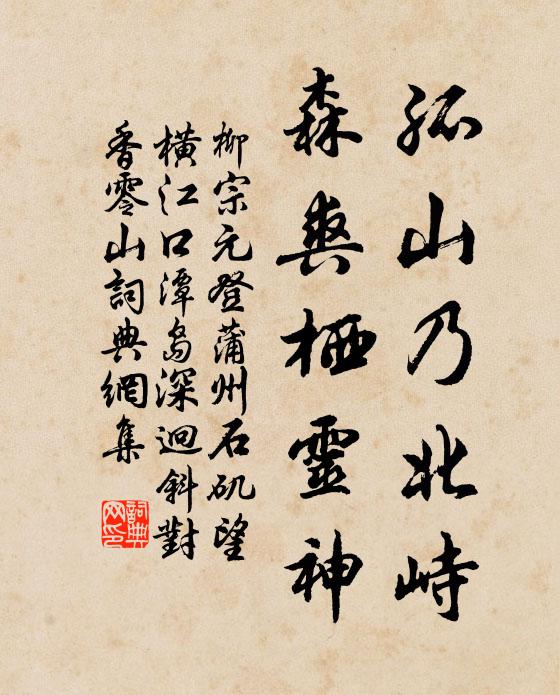 孤山乃北峙
森爽栖靈神
柳宗元登蒲州石矶望
橫江口潭島深迴斜對
香零山詞典網集
詞典
网印